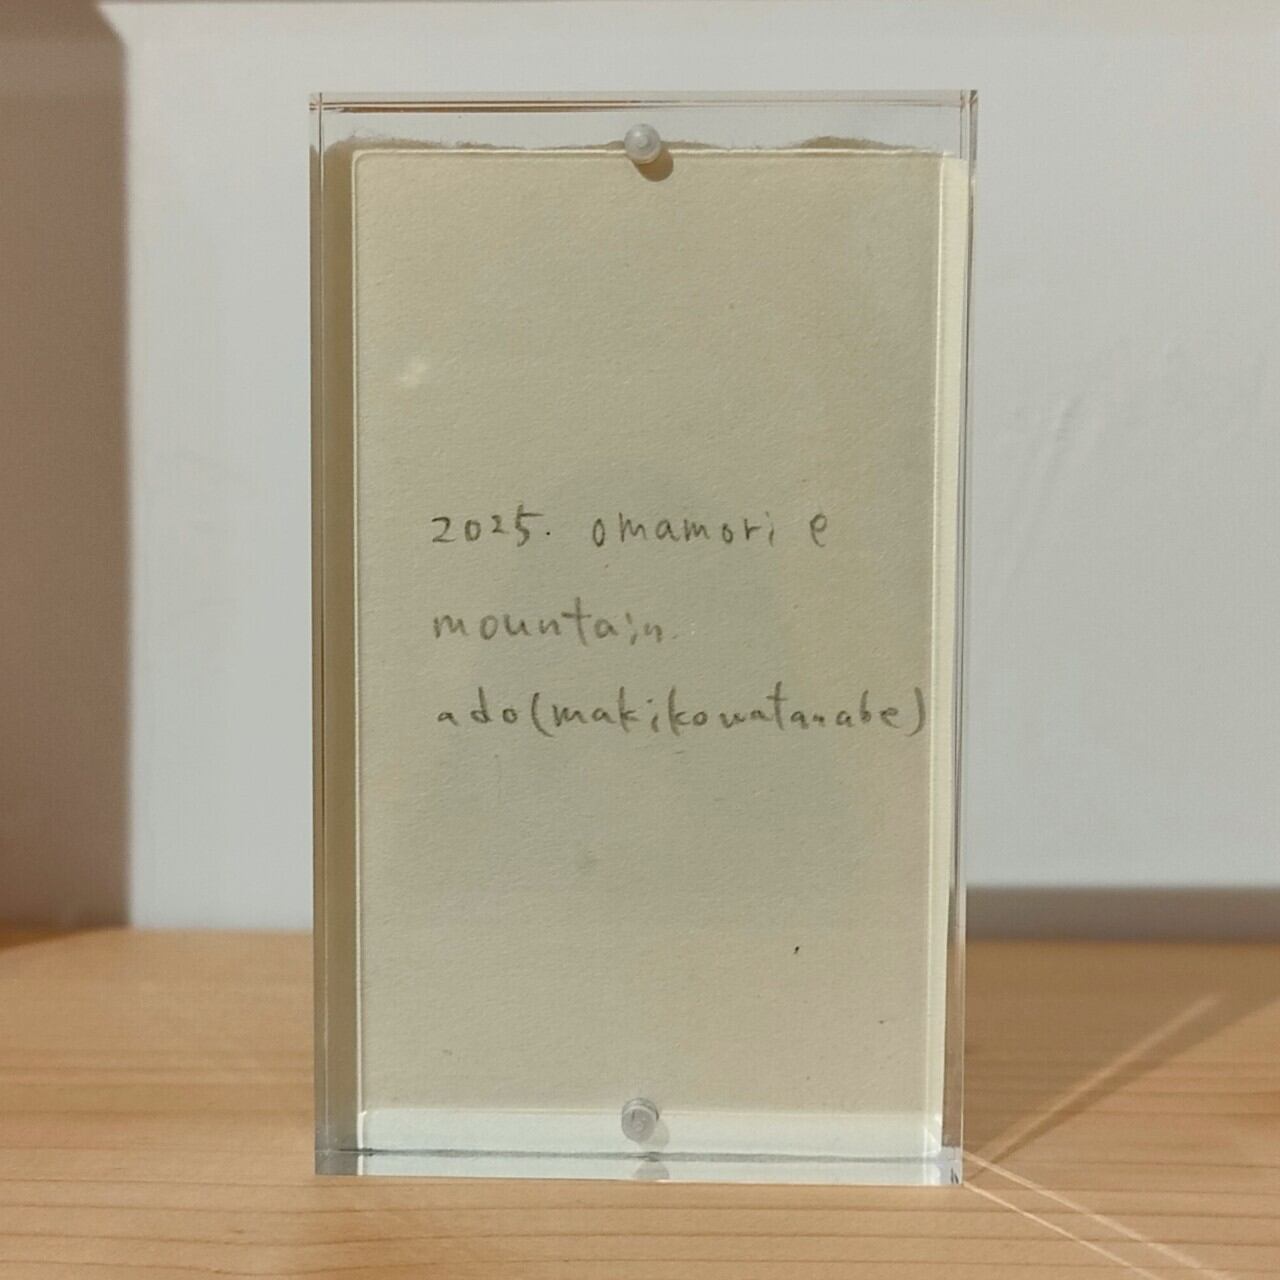 2025. omamori e
mountain.
ado(makikowatanabe)